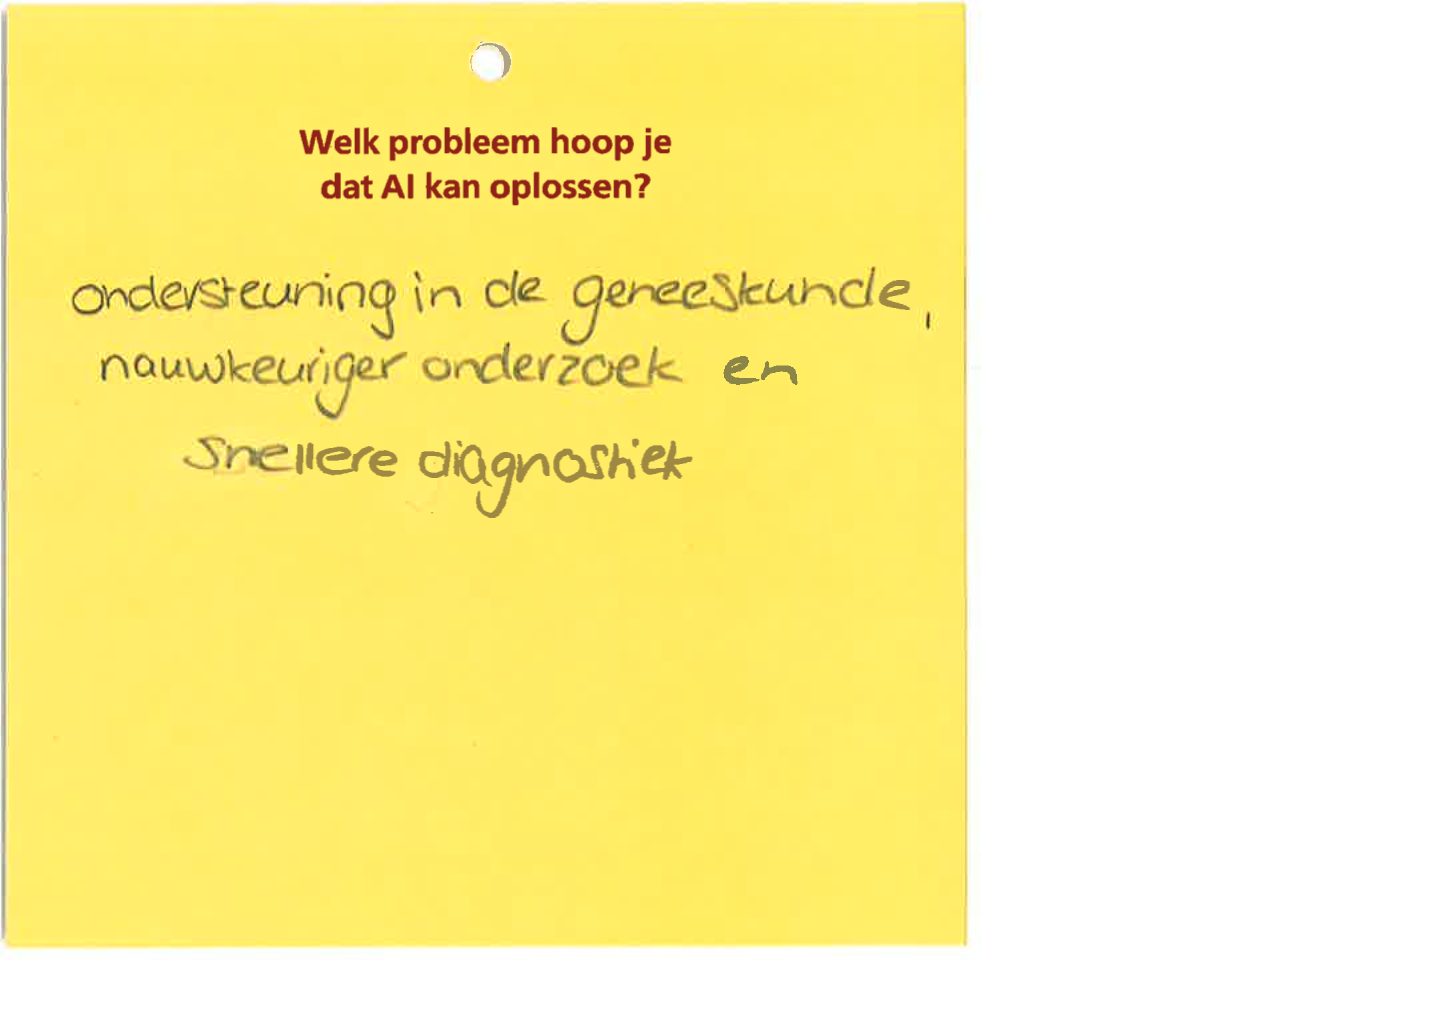 Welk probleem hoop je
dat AI kan oplossen?
ondersteuning in de geneeskunde,
nauwkeuriger onderzoek en
snellere diagnostiek